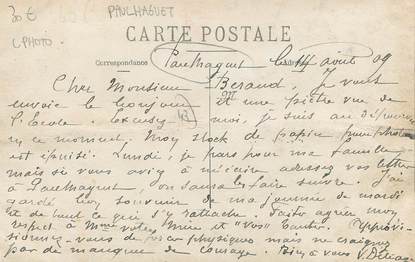 30 €
PAULHAGUET
CPHOTO.
CARTE POSTALE
Correspondance
Paulhaguet le 14 août 09
Cher Monsieur Beraud, Je vous
envoie le bonjour et une piètre vue de
l'Ecole. Excusez moi, je suis au dépourvu
en ce moment. Mon stock de papier pour photos
est épuisé. Lundi, je pars pour ma famille
mais si vous aviez à m'écrire adressez vos lettres
à Paulhaguet, on vous les faire suivre. J'ai
gardé bon souvenir de ma journée de mardi
et de tout ce qui s'y rattache. Faites agréer mon
respect à Mme votre mère et "vos" tantes.
vous de force physique mais ne craignez
pas de manquer de courage. Bien à vous